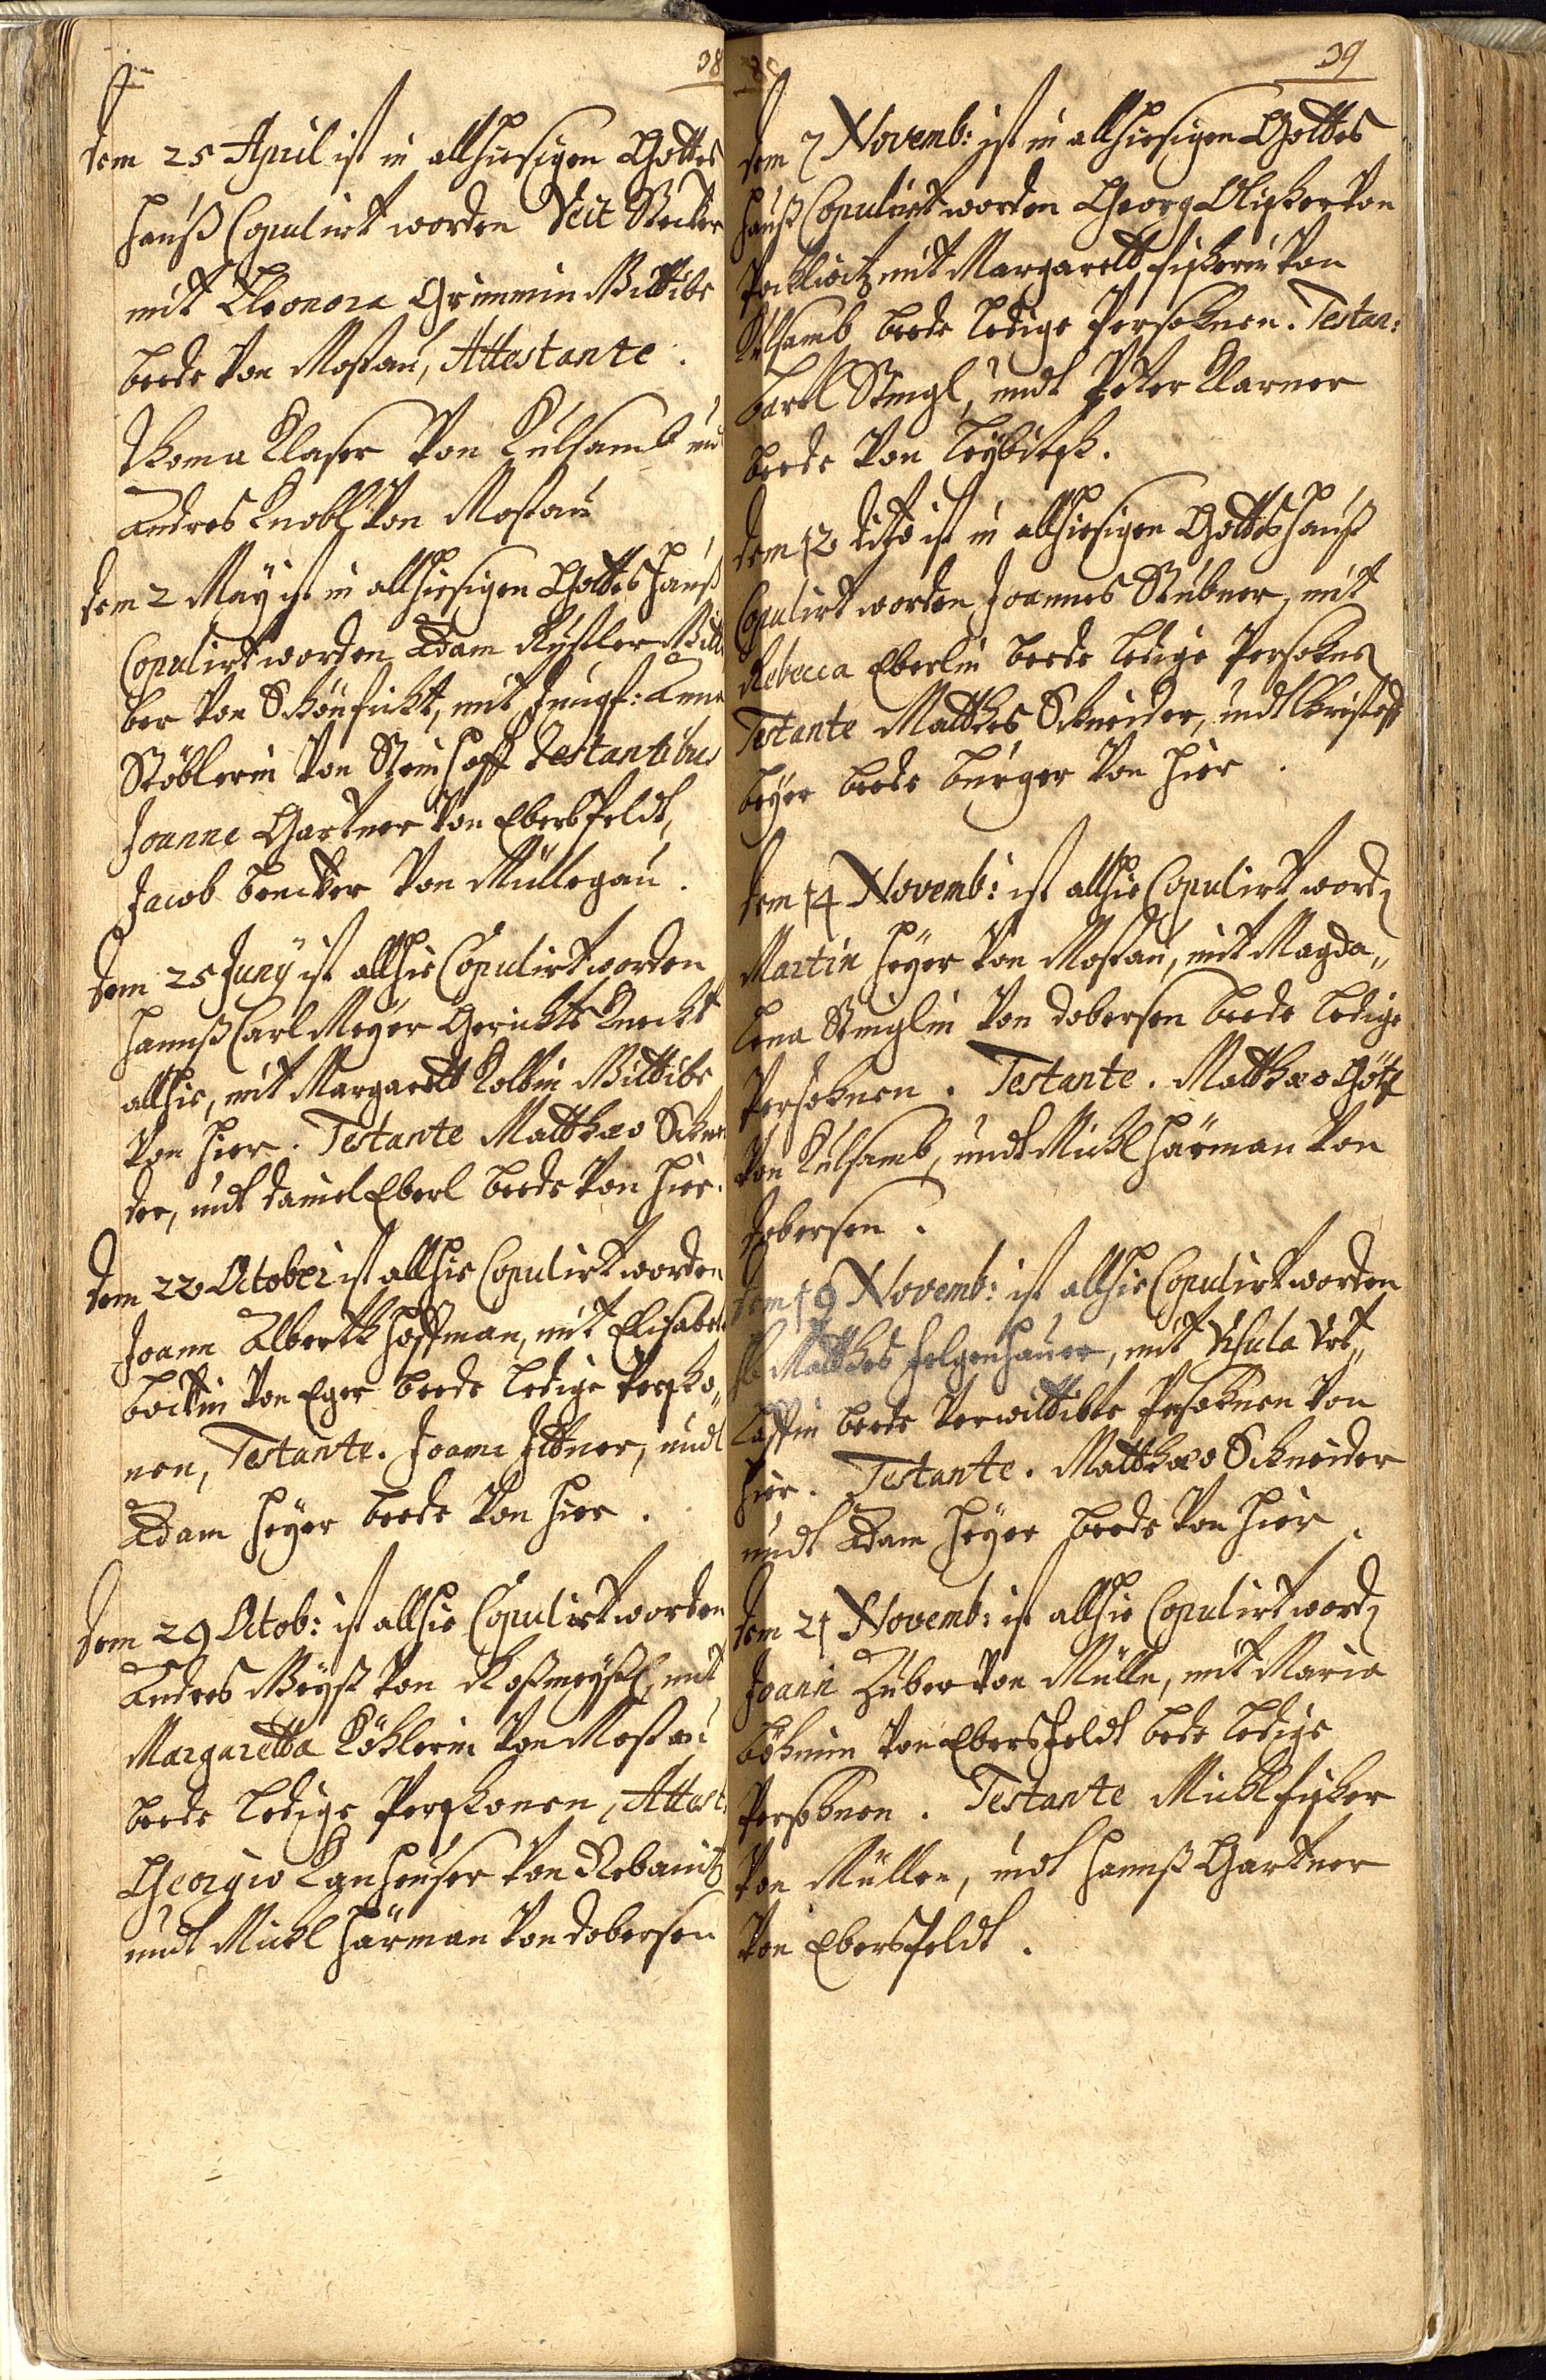 38
dem 25 April ist in allhiesigen Gottes
Hauß Copulirt worden Veit Becker
mit Eleonora Grimmin Wittibe
beede von Mostau, Attestante.
Thoma Klaser von Kulsamb und
Andres Knobl von Mostau
dem 2 May ist in allhiesigen Gottes Hauß
Copulirt worden Adam Küstler Witt
ber von Schönficht, mit Jungf: Anna
Stöblerin von Steinhoff Testantibus
Joanne Gartner von Ebersfeldt,
Jacob Beucker von Müllegau.
dem 25 Juny ist allhie Copulirt worden
Hannß Carl Meyer Gerichts Knecht
allhie, mit Margareth Kolbin Wittibe
von hier. Testante Matthæo Schnei
der, undt Daniel Eberl beede von hier.
dem 22 Octobri ist allhie Copulirt worden
Joann Alberth Hoffman, mit Elisabeth
Böckin von Eger beede ledige Persho„
nen, Testante. Joanne Zittner, undt
Adam Heyer beede von hier.
dem 29 Octob: ist allhie Copulirt worden
Andres Weyß von Roßmeyßl, mit
Margaretha Köhlerin von Mostau
beede ledige Pershonen, Attest:
Georgio Lanheuser von Rebanitz
undt Michl Härman von Dobersen
39
dem 7 Novemb: ist in allhiesigen Gottes
Hauß Copulirt worden Georg Olischer von
Pochlwitz mit Margareth Fischerin von
Kulsamb beede ledige Persohnen. Testan:
Carl Stingl, undt Peter Klarner
beede von Leybitsch.
dem 12 dito ist in allhiesigen Gottes Hauß
Copulirt worden Joannes Stübner, mit
Rebecca Eberlin beede ledige Persohnen
Testante Matthes Schneider, undt Christoph
Beyer beede Burger von hier.
dem 14 Novemb: ist allhie Copulirt worden
Martin Heyer von Mostau, mit Magda„
lena Stinglin von Dobersen beede ledige
Persohnen. Testante. Matthæo Götz
von Kulsamb, undt Michl Härman von
Dobersen.
dem 19 Novemb: ist allhie Copulirt worden
Matthes Felgenhauer, mit Ursula
beede verwittibte Persohnen von
hier. Testante. Matthæo Schneider
undt Adam Heyer beede von hier.
dem 21 Novemb: ist allhie Copulirt worden
Joann Huber von Mülln, mit Maria
Böhmin von Ebersfeldt bede ledige
Persohnen. Testante Michl Fischer
von Müllen, undt Hannß Gartner
von Ebersfeldt.